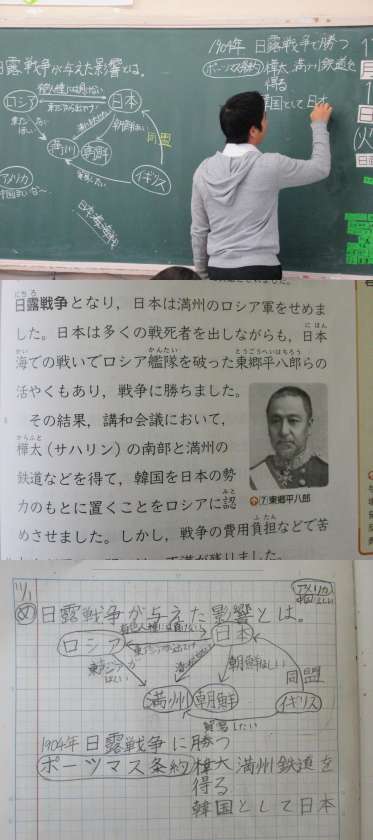 日露戦争が与えた影響とは。
ロシア
日本
朝鮮ほしい
満州
朝鮮
同盟
貿易したい
アメリカ
イギリス
日本海海戦
1904年 日露戦争で勝つ
ポーツマス条約 樺太、満州鉄道を
得る
韓国として日本
月
日
火
にちろ
日露戦争となり，日本は満州のロシア軍をせめま
した。日本は多くの戦死者を出しながらも，日本
にほん
海での戦いでロシア艦隊を破った東郷平八郎らの
かい
かんたい
とうごうへいはちろう
活やくもあり，戦争に勝ちました。
その結果，講和会議において，
からふと
樺太（サハリン）の南部と満州の
鉄道などを得て，韓国を日本の勢
力のもとに置くことをロシアに認
みと
めさせました。しかし，戦争の費用負担などで苦
ふたん
不満が残りました。
⑦東郷平八郎
11/1
め 日露戦争が与えた影響とは。
アメリカ
ロシア
日本
朝鮮ほしい
同盟
満州
朝鮮
イギリス
貿易したい
1904年 日露戦争に勝つ
ポーツマス条約 樺太 満州鉄道を
得る
韓国として日本